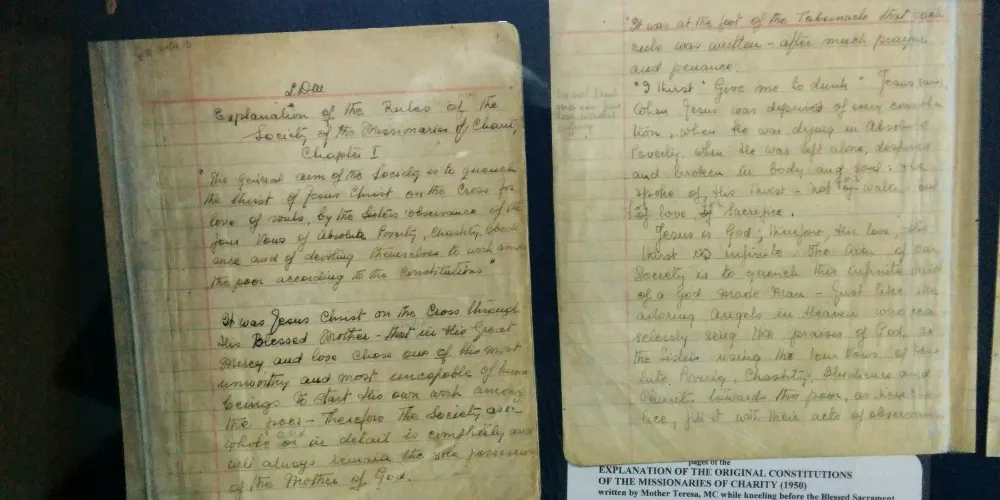 L.D.M
Explanation of the Rules of the
Society of the Missionaries of Charity
Chapter I
"The General aim of the Society is to quench
the thirst of Jesus Christ on the Cross for
love of souls, by the Sisters observance of the
four Vows of Absolute Poverty, Chastity, Obedi
ence and of devoting themselves to work among
the poor according to the Constitutions"
It was Jesus Christ on the Cross through
His Blessed Mother – that in His Great
Mercy and love chose one of His most
unworthy and most uncapable of human
beings to start His own work among
the poor – therefore the Society as a
whole or in detail is completely and
will always remain the sole possession
of the Mother of God.
"It was at the foot of the Tabernacle that each
rule was written – after much prayer
and penance.
"I thirst" "Give me to drink" Jesus said
when Jesus was deprived of every consola
tion, when He was dying in Absolute
Poverty, when He was left alone, despised
and broken in body and soul. He
spoke of His thirst – not of water – but
of love, of sacrifice.
Jesus is God; therefore His love, His
thirst is infinite. The Aim of our
Society is to quench this infinite thirst
of a God made Man – Just like the
adoring angels in Heaven who cea
selessly sing the praises of God, so
the Sisters using the four Vows of Abso
lute Poverty, Chastity, Obedience and
Charity towards the poor,
with their acts of
pages of the
EXPLANATION OF THE ORIGINAL CONSTITUTIONS
OF THE MISSIONARIES OF CHARITY (1950)
written by Mother Teresa, MC while kneeling before the Blessed Sacrament